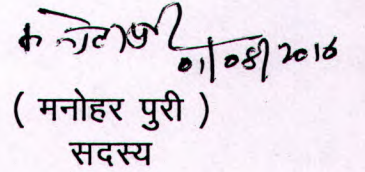 01/08/2016
( मनोहर पुरी )
सदस्य